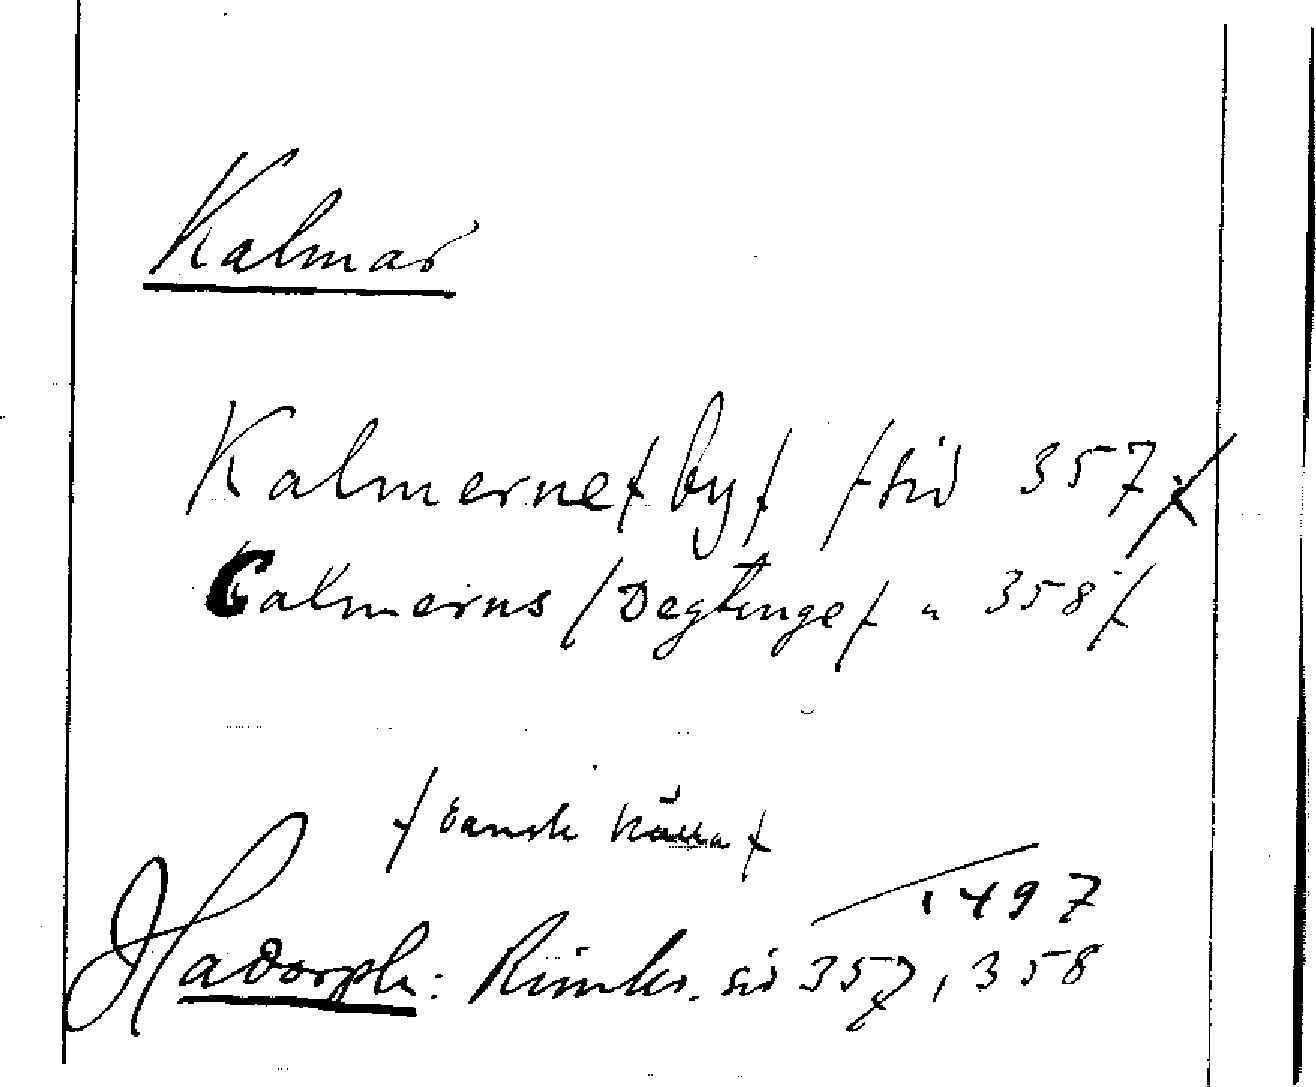 Kalmar
Kalmerne/ by/ /sid 357/
Calmerns /Degtinge/ " 358/
/Dansk källa/
1497
Hadorph: Rimkr. sid 357, 358